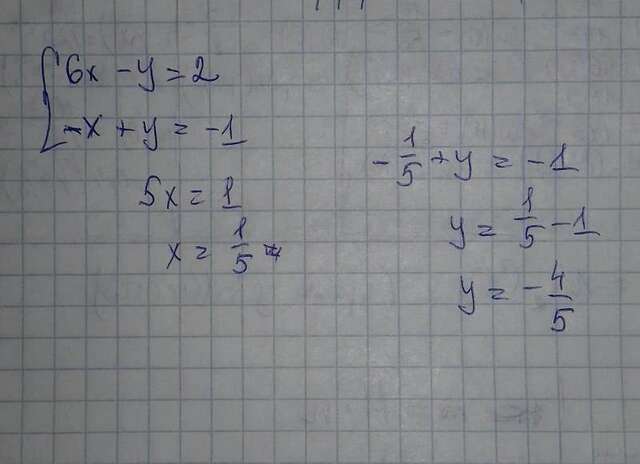 6x - y = 2
-x + y = -1
5x = 1
x = 1/5
-1/5 + y = -1
y = 1/5 - 1
y = -4/5